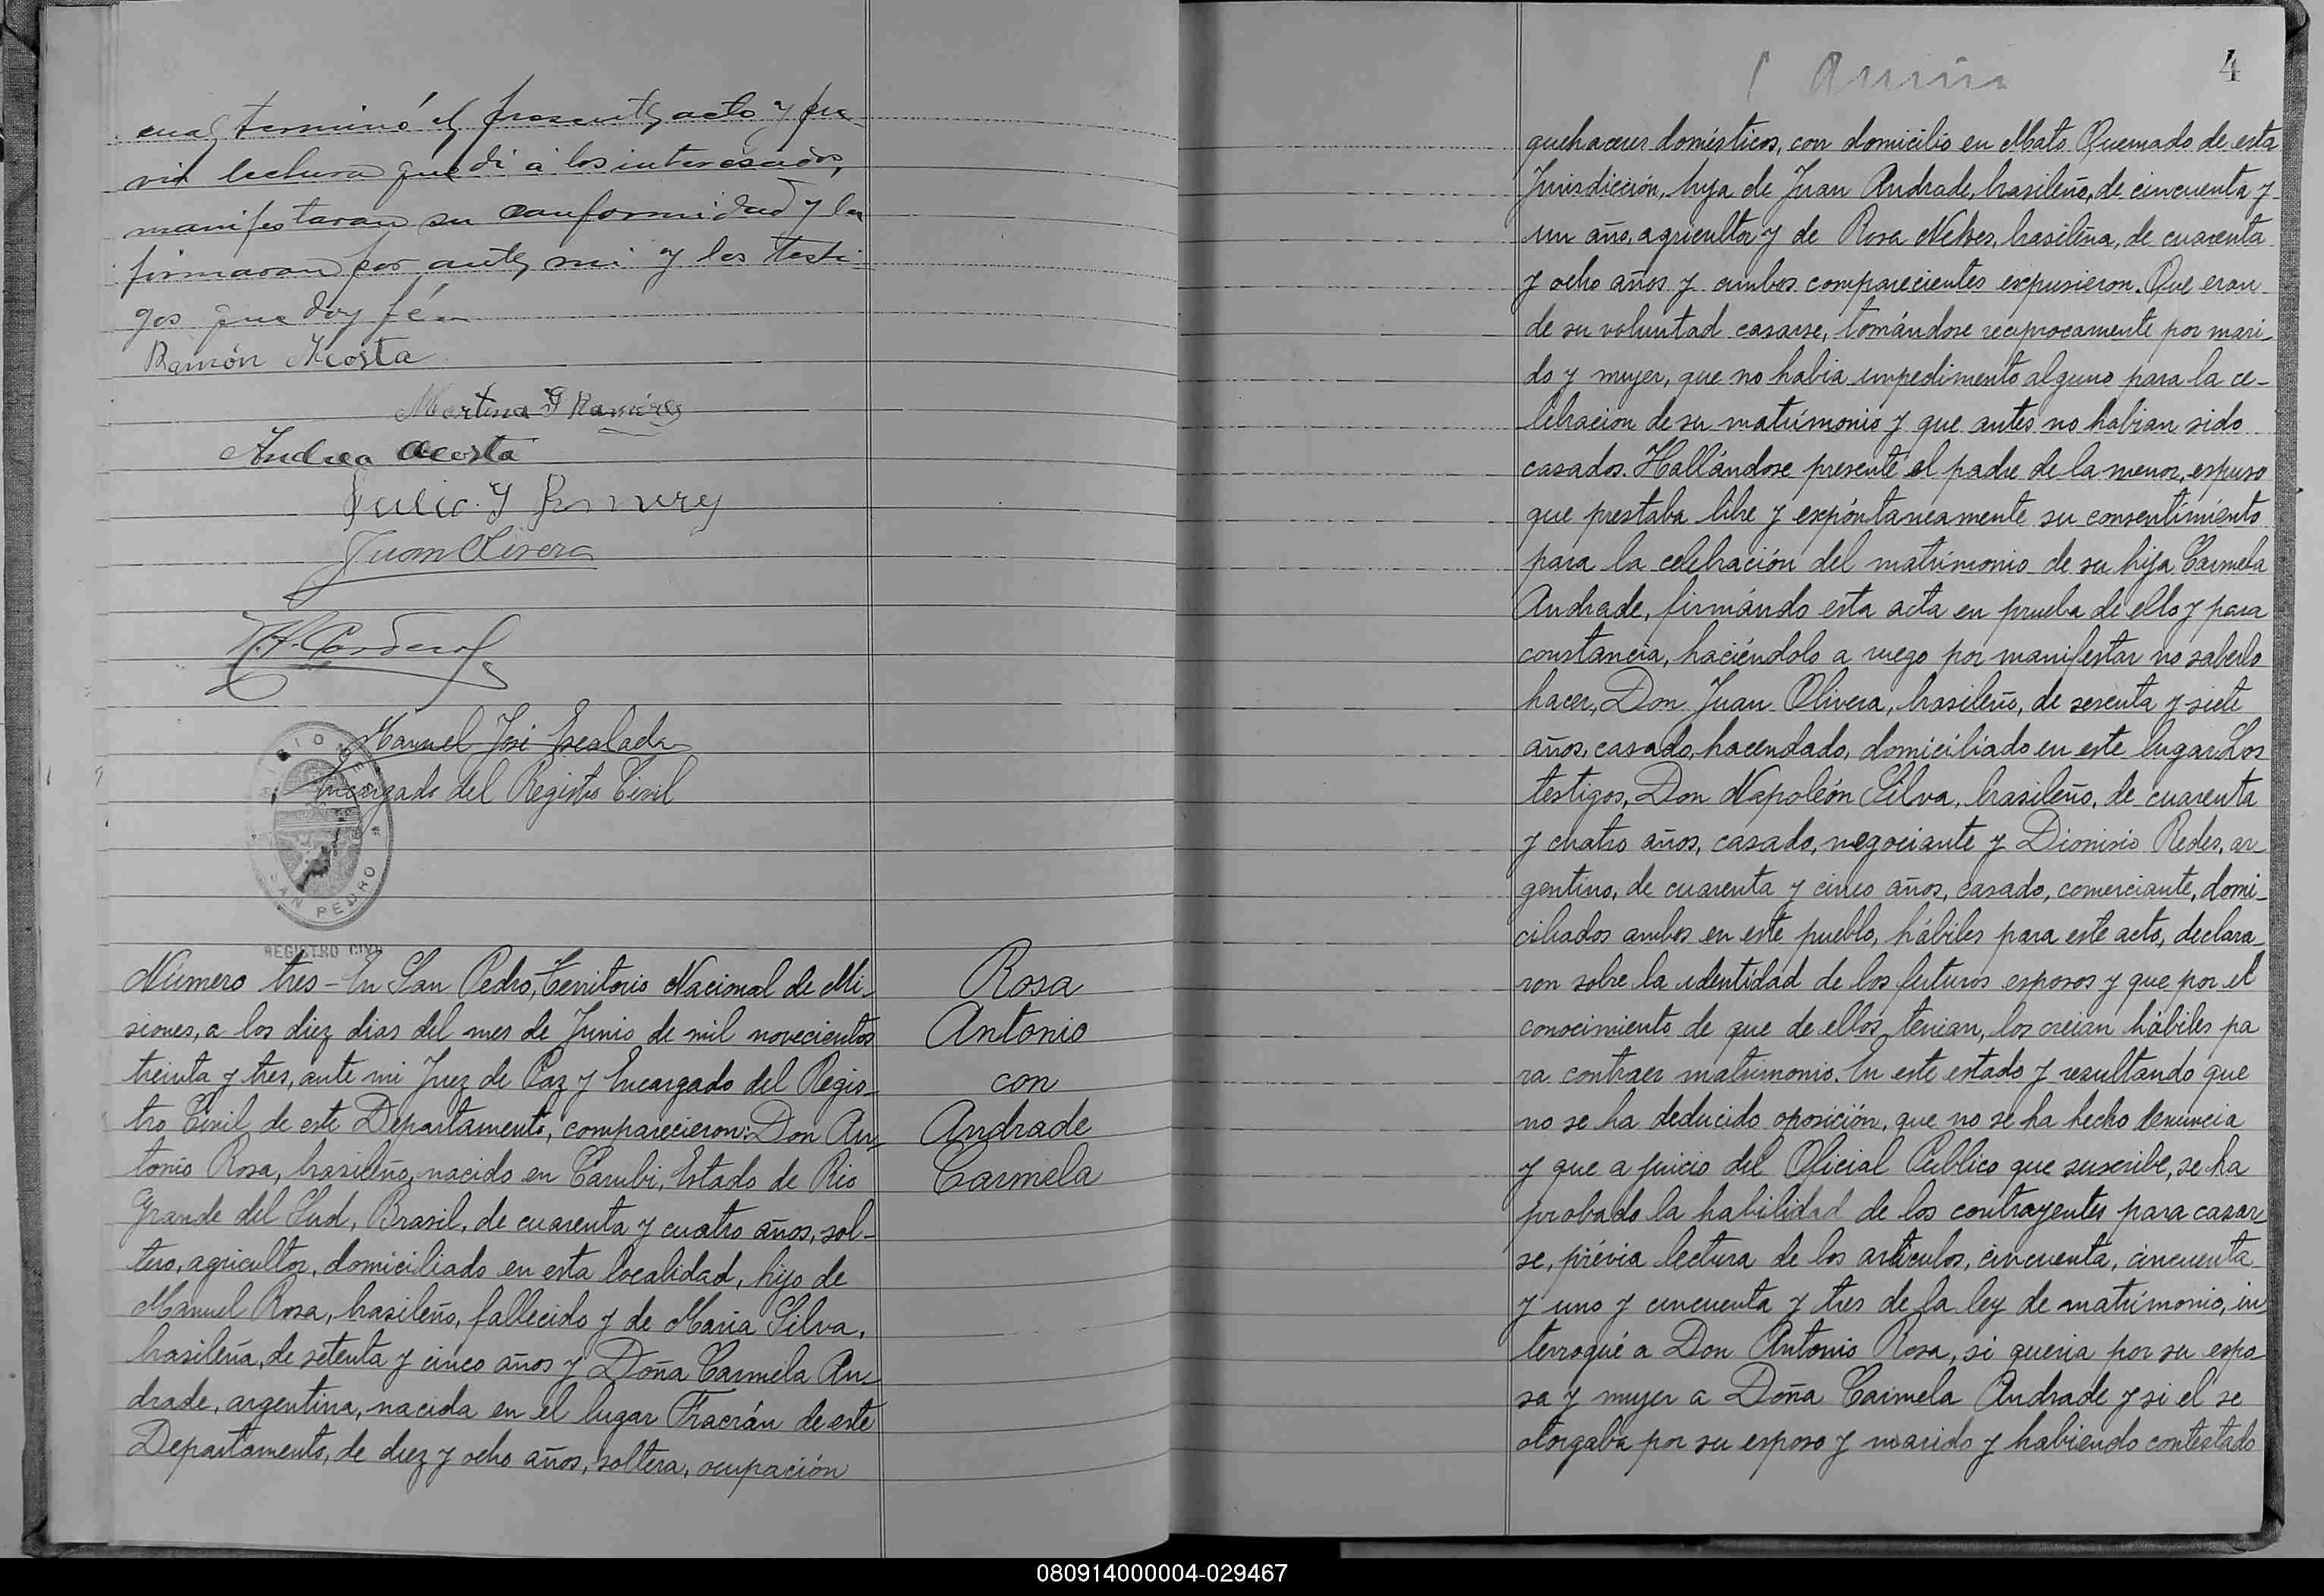 cual terminó el presente acto y pre-
via lectura que di a los interesados,
manifestaron su conformidad y la
firmaron por ante mi y los testi-
gos que doy fé.
Ramón Acosta
Martina Ramirez
Andrea Acosta
Julio
Juan Olivera
Manuel José Escalada
Encargado del Registro Civil
MISIONES
SAN PEDRO
REGISTRO CIVIL
Número tres - En San Pedro, Territorio Nacional de Mi-
siones, a los diez dias del mes de Junio de mil novecientos
treinta y tres, ante mi Juez de Paz y Encargado del Regis-
tro Civil de este Departamento, comparecieron: Don An-
tonio Rosa, brasileño, nacido en Carubi, Estado de Rio
Grande del Sud, Brasil, de cuarenta y cuatro años, sol-
tero, agricultor, domiciliado en esta localidad, hijo de
Manuel Rosa, brasileño, fallecido y de Maria Silva,
brasileña, de setenta y cinco años y Doña Carmela An-
drade, argentina, nacida en el lugar Fracrán de este
Departamento, de diez y ocho años, soltera, ocupación
Rosa
Antonio
con
Andrade
Carmela
4
quehaceres domésticos, con domicilio en Mato Quemado de esta
Jurisdicción, hija de Juan Andrade, brasileño, de cincuenta y
un año, agricultor y de Rosa brasileña, de cuarenta
y ocho años y ambos comparecientes expusieron. Que eran
de su voluntad casarse, tomándose reciprocamente por mari-
do y mujer, que no habia impedimento alguno para la ce-
lebracion de su matrimonio y que antes no habian sido
casados. Hallándose presente el padre de la menor, espuso
que prestaba libre y expóntaneamente su consentimiento
para la celebración del matrimonio de su hija Carmela
Andrade, firmándo esta acta en prueba de ello y para
constancia, haciéndolo a ruego por manifestar no saberlo
hacer, Don Juan Olivera, brasileño, de sesenta y siete
años, casado, hacendado, domiciliado en este lugar. Los
testigos, Don Napoleón Silva, brasileño, de cuarenta
y cuatro años, casado, negociante y Dionisio Redes, ar-
gentino, de cuarenta y cinco años, casado, comerciante, domi-
ciliados ambos en este pueblo, hábiles para este acto, declara-
ron sobre la identidad de los futuros esposos y que por el
conocimiento de que de ellos tenian, los creian hábiles pa
ra contraer matrimonio. En este estado y resultando que
no se ha deducido oposición, que no se ha hecho denuncia
y que a juicio del Oficial Publico que suscribe, se ha
probado la habilidad de los contrayentes para casar-
se, prévia lectura de los articulos, cincuenta, cincuenta
y uno y cincuenta y tres de la ley de matrimonio, in
terrogué a Don Antonio Rosa, si queria por su espo-
sa y mujer a Doña Carmela Andrade y si el se
otorgaba por su esposo y marido y habiendo contestado
080914000004-029467